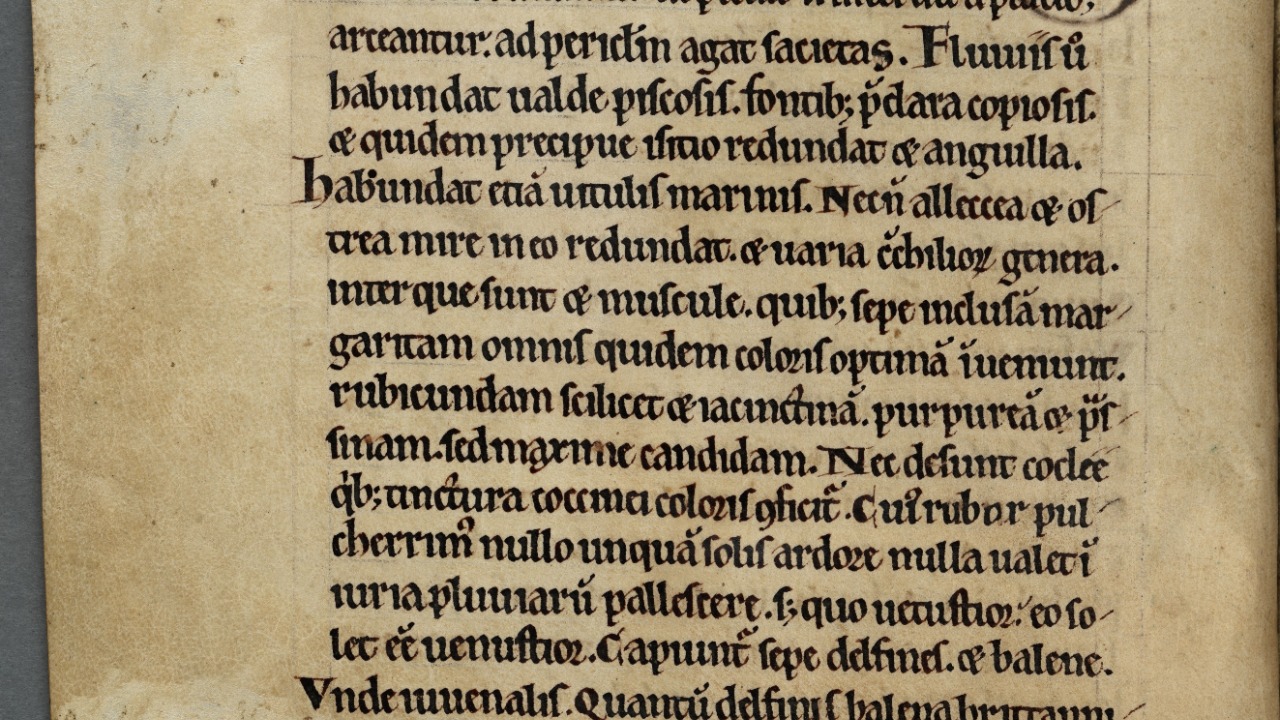 arceantur. ad pericl̄m agat sacietas. Fluuiis ů
habundat ualde piscosis. fontib; p̄clara copiosis.
⁊ quidem precipue isitio redundat ⁊ anguilla.
Habundat etiā uitulis marinis. Necn̄ alleccea ⁊ os-
trea mire in eo redundat. ⁊ uaria c̄chilioꝝ genera.
inter que sunt ⁊ muscule. quib; sepe inclusā mar-
garitam omnis quidem coloris optimā īueniunt.
rubicundam scilicet ⁊ iacinctinā. purpureā ⁊ p̈s-
sinam. sed maxime candidam. Nec desunt coclee
q̇b; tinctura coccinei coloris ꝯficit᷑. Cui᷒ rubor pul-
cherrim᷒ nullo unquā solis ardore nulla ualet ī
iuria pluuiarū pallescere. s; quo uetustior. eo so-
let ēē uenustior. Capiunt᷑ sepe delfines. ⁊ balene.
Vnde iuuenalis. Quantū delfinis balena brittanni